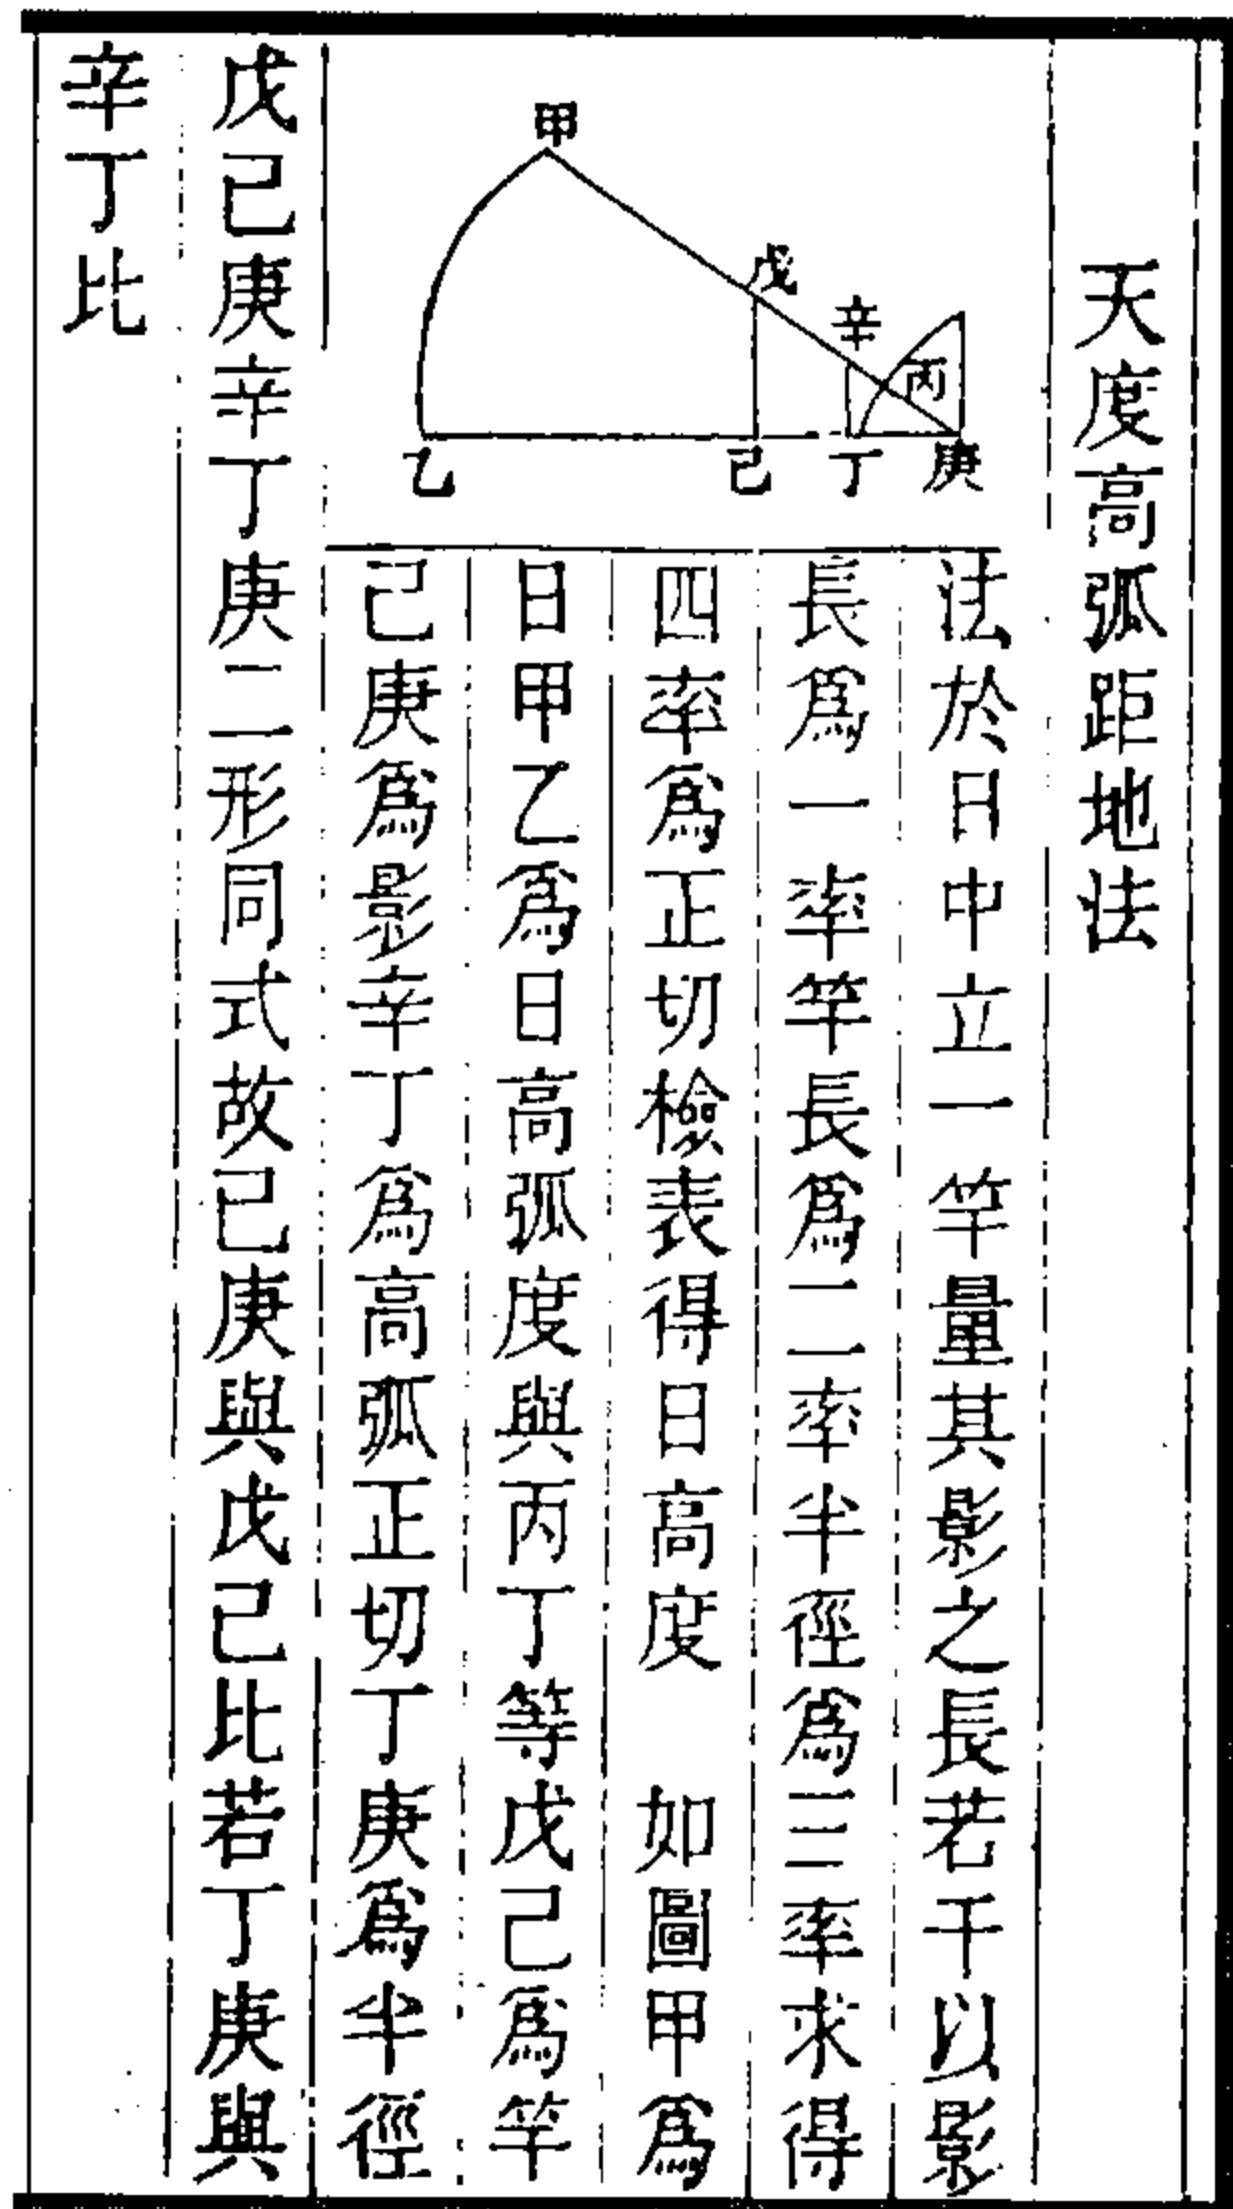 天度高弧距地法
甲
戊
辛
丙
乙
己
丁
庚
法於日中立一竿量其影之長若干以影
長爲一率竿長爲二率半徑爲三率求得
四率爲正切檢表得日高度　如圖甲爲
日甲乙爲日高弧度與丙丁等戊己爲竿
己庚爲影辛丁爲高弧正切丁庚爲半徑
戊己庚辛丁庚二形同式故己庚與戊己比若丁庚與
辛丁比